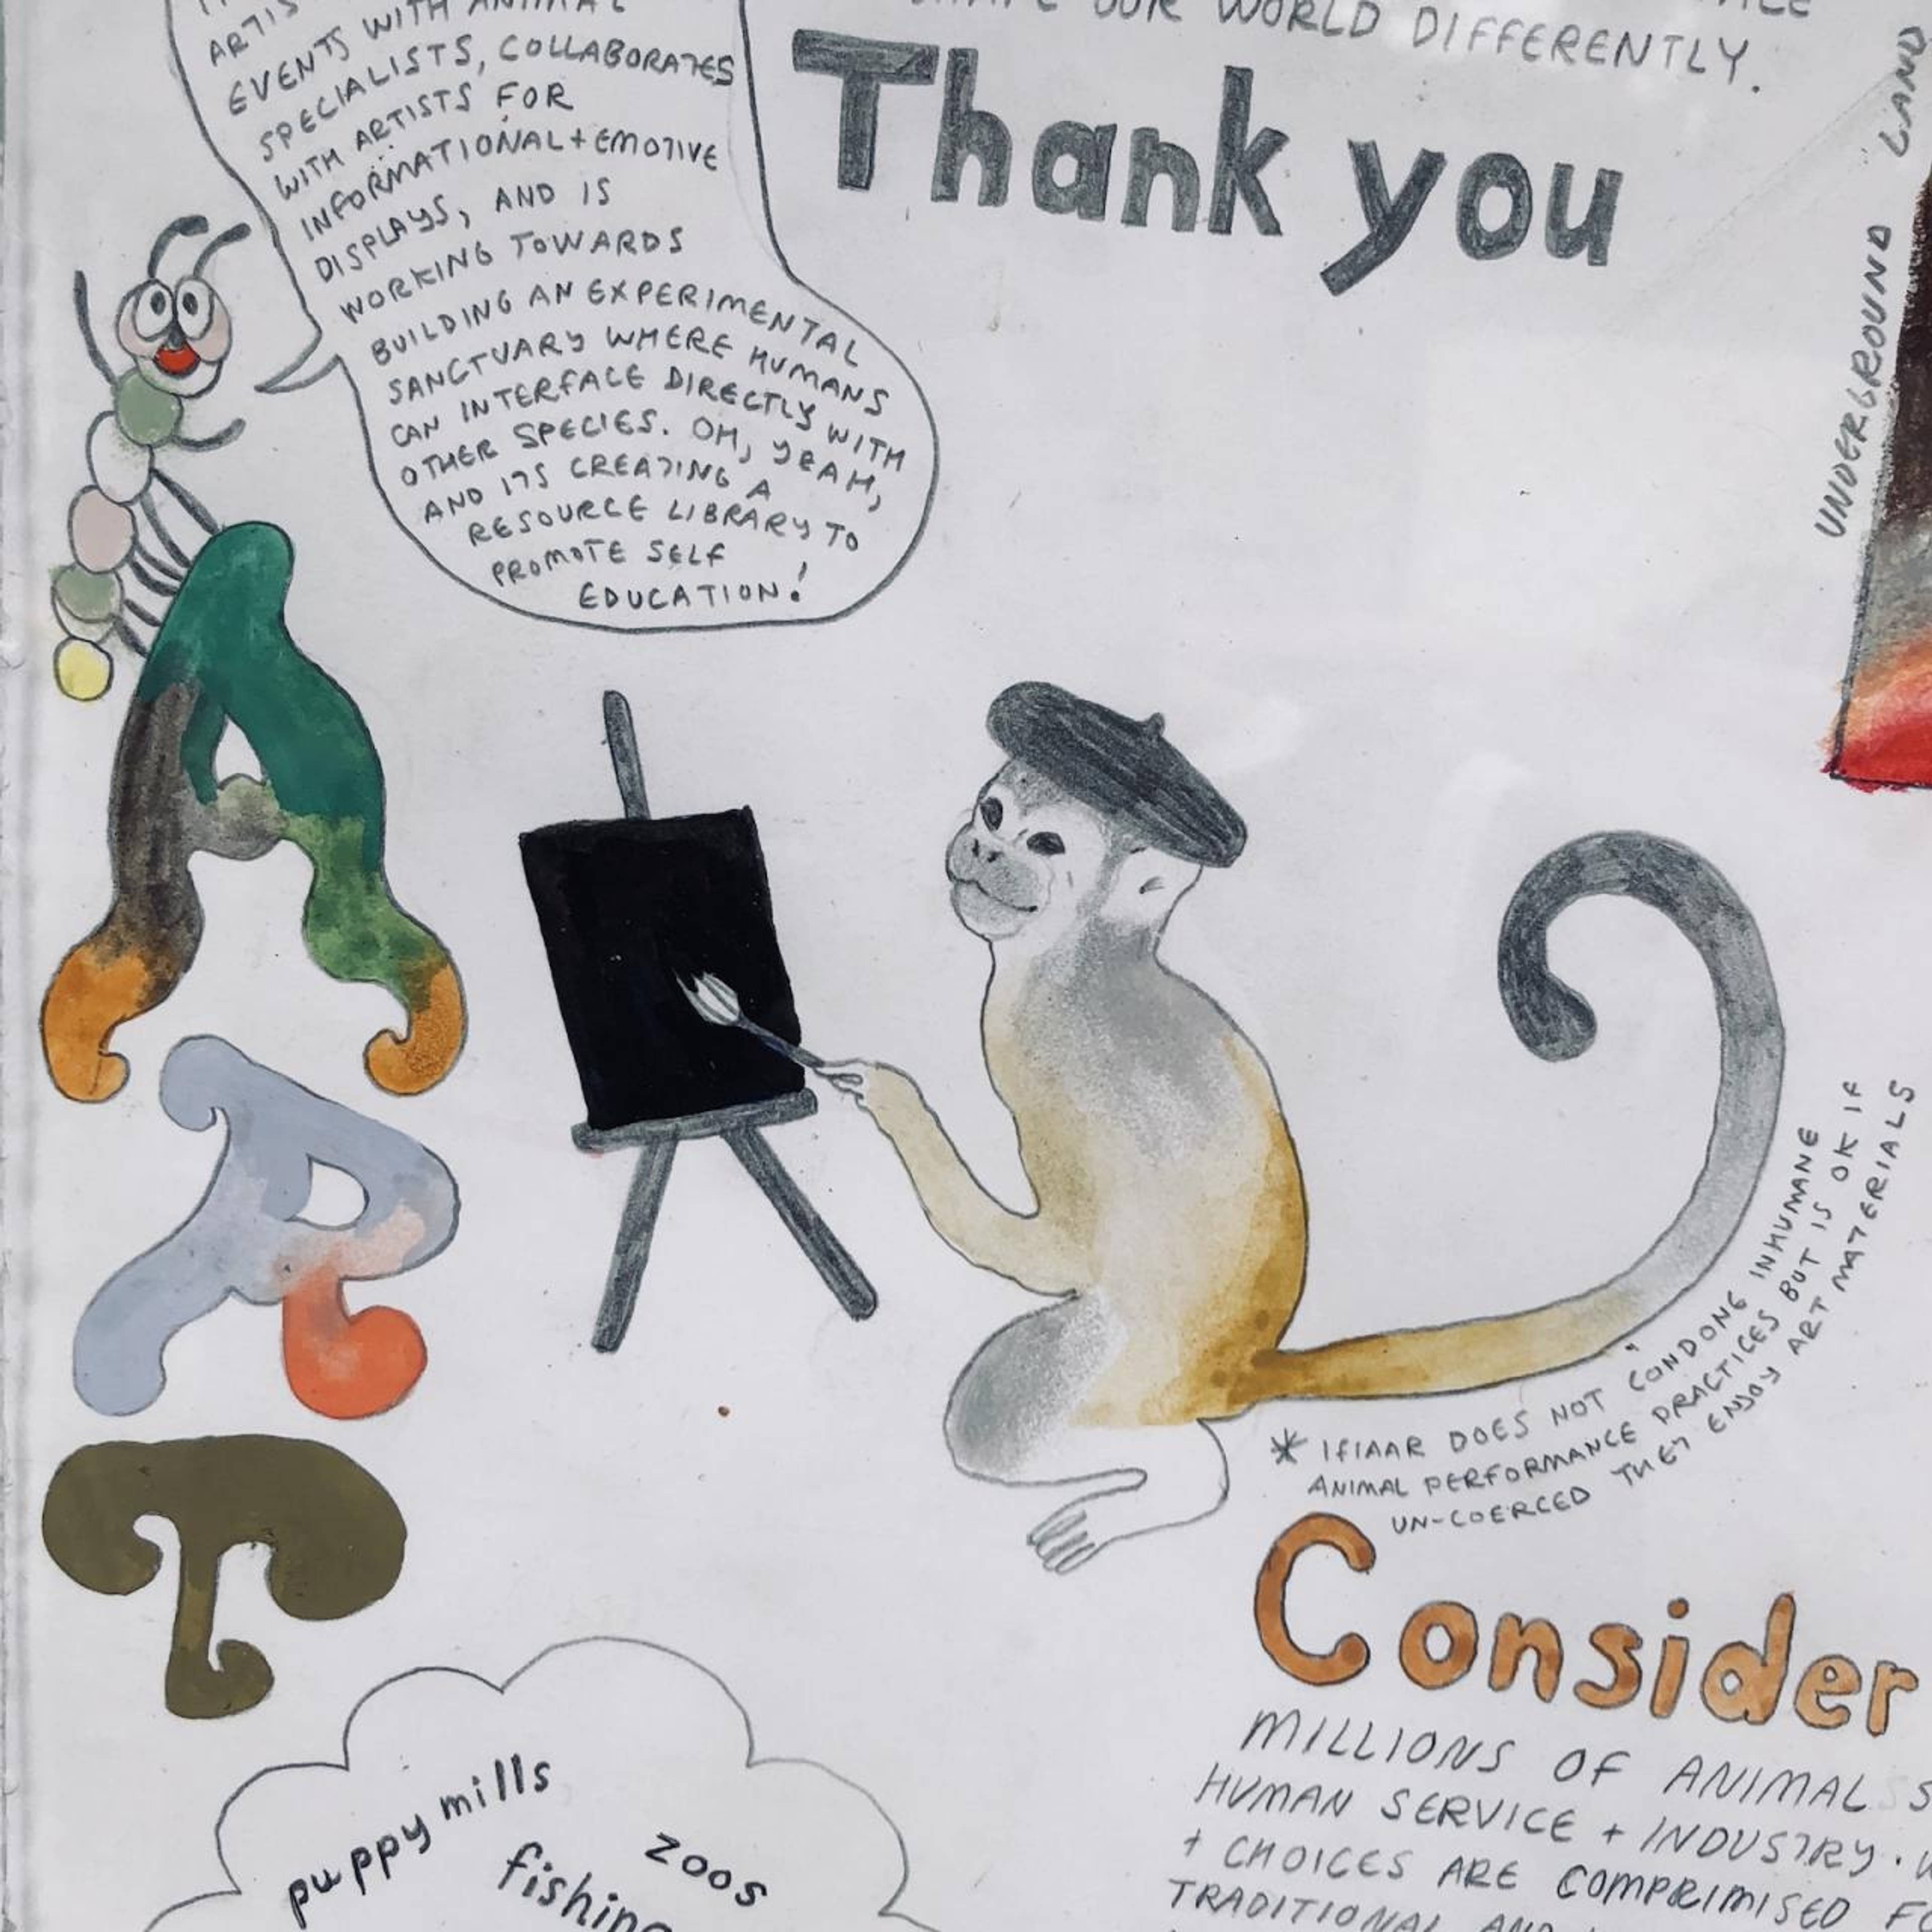 EVENTS WITH ANIMAL
SPECIALISTS, COLLABORATES
WITH ARTISTS FOR
INFORMATIONAL + EMOTIVE
DISPLAYS, AND IS
WORKING TOWARDS
BUILDING AN EXPERIMENTAL
SANCTUARY WHERE HUMANS
CAN INTERFACE DIRECTLY WITH
OTHER SPECIES. OH, YEAH,
AND ITS CREATING A
RESOURCE LIBRARY TO
PROMOTE SELF
EDUCATION!
OUR WORLD DIFFERENTLY.
Thank you
UNDERGROUND LAND
A
R
T
* IFIAAR DOES NOT CONDONG INHUMANE
ANIMAL PERFORMANCE PRACTICES BUT IS OK IF
UN-COERCED THEY ENJOY ART MATERIALS
Consider
MILLIONS OF ANIMAL S
HUMAN SERVICE + INDUSTRY.
+ CHOICES ARE COMPRIMISED
TRADITIONAL AND
puppy mills
zoos
fishing